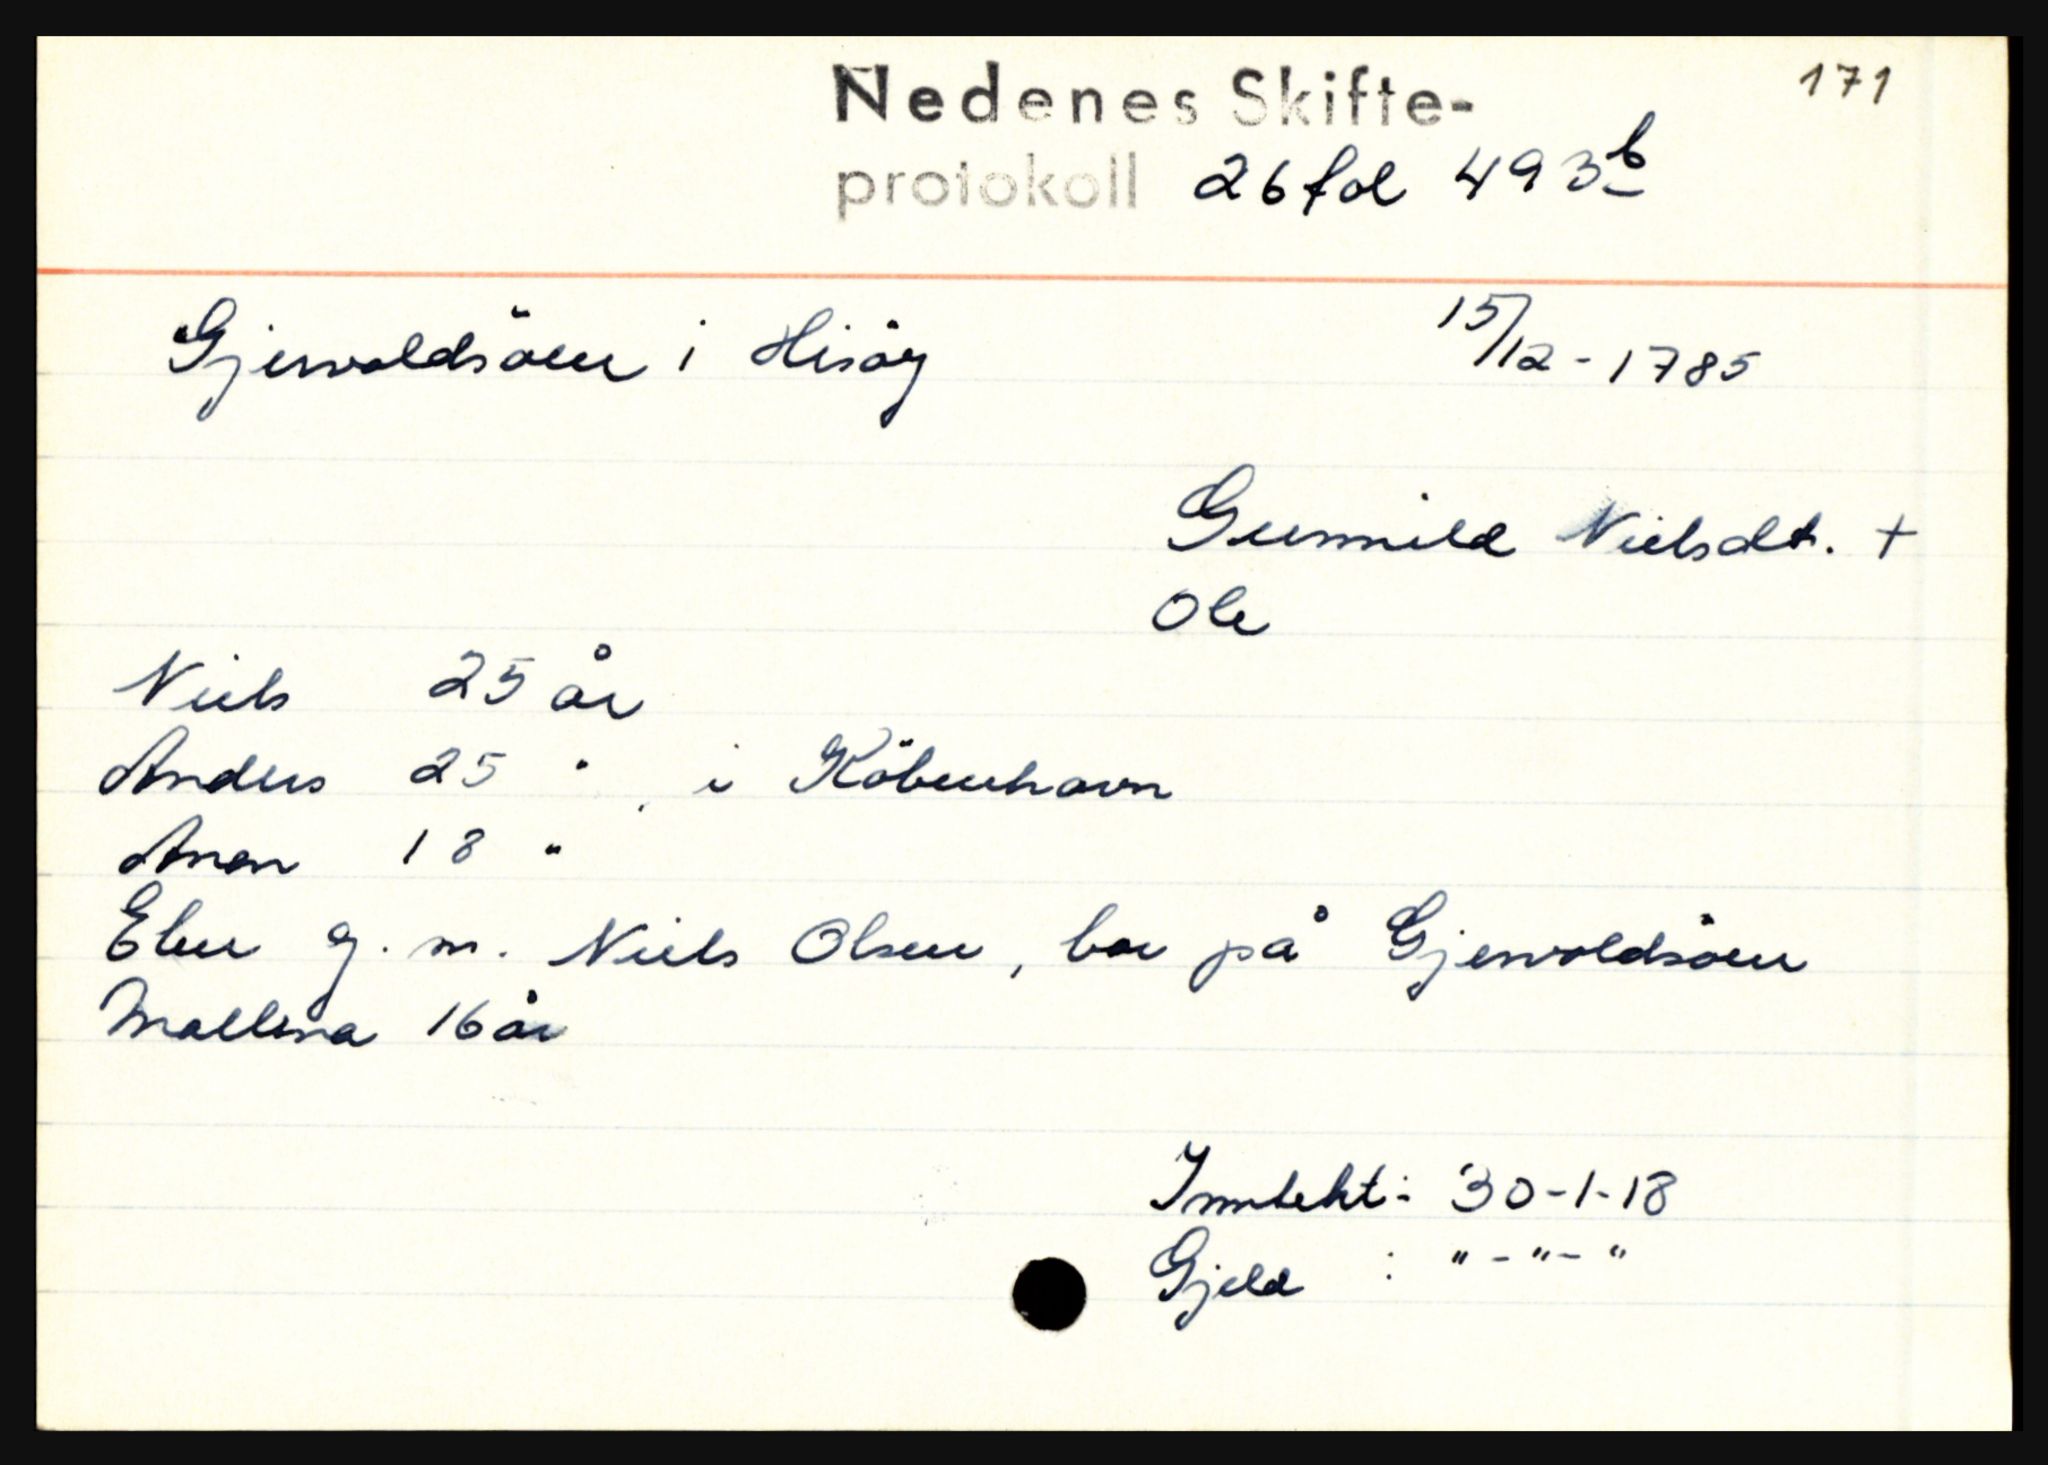 171
Nedenes Skifte-
protokoll 26 fol 493 b
Gjervoldsöen i Hisöy 15/12-1785
Gunnild Nielsdt. +
Ole
Niels 25 år
Anders 25 " , i Köbenhavn
Anen 18 "
Elen g. m. Niels Olsen, bor på Gjervoldsöen
Mallena 16 år
Inntekt: 30-1-18
Gjeld : "-"-"